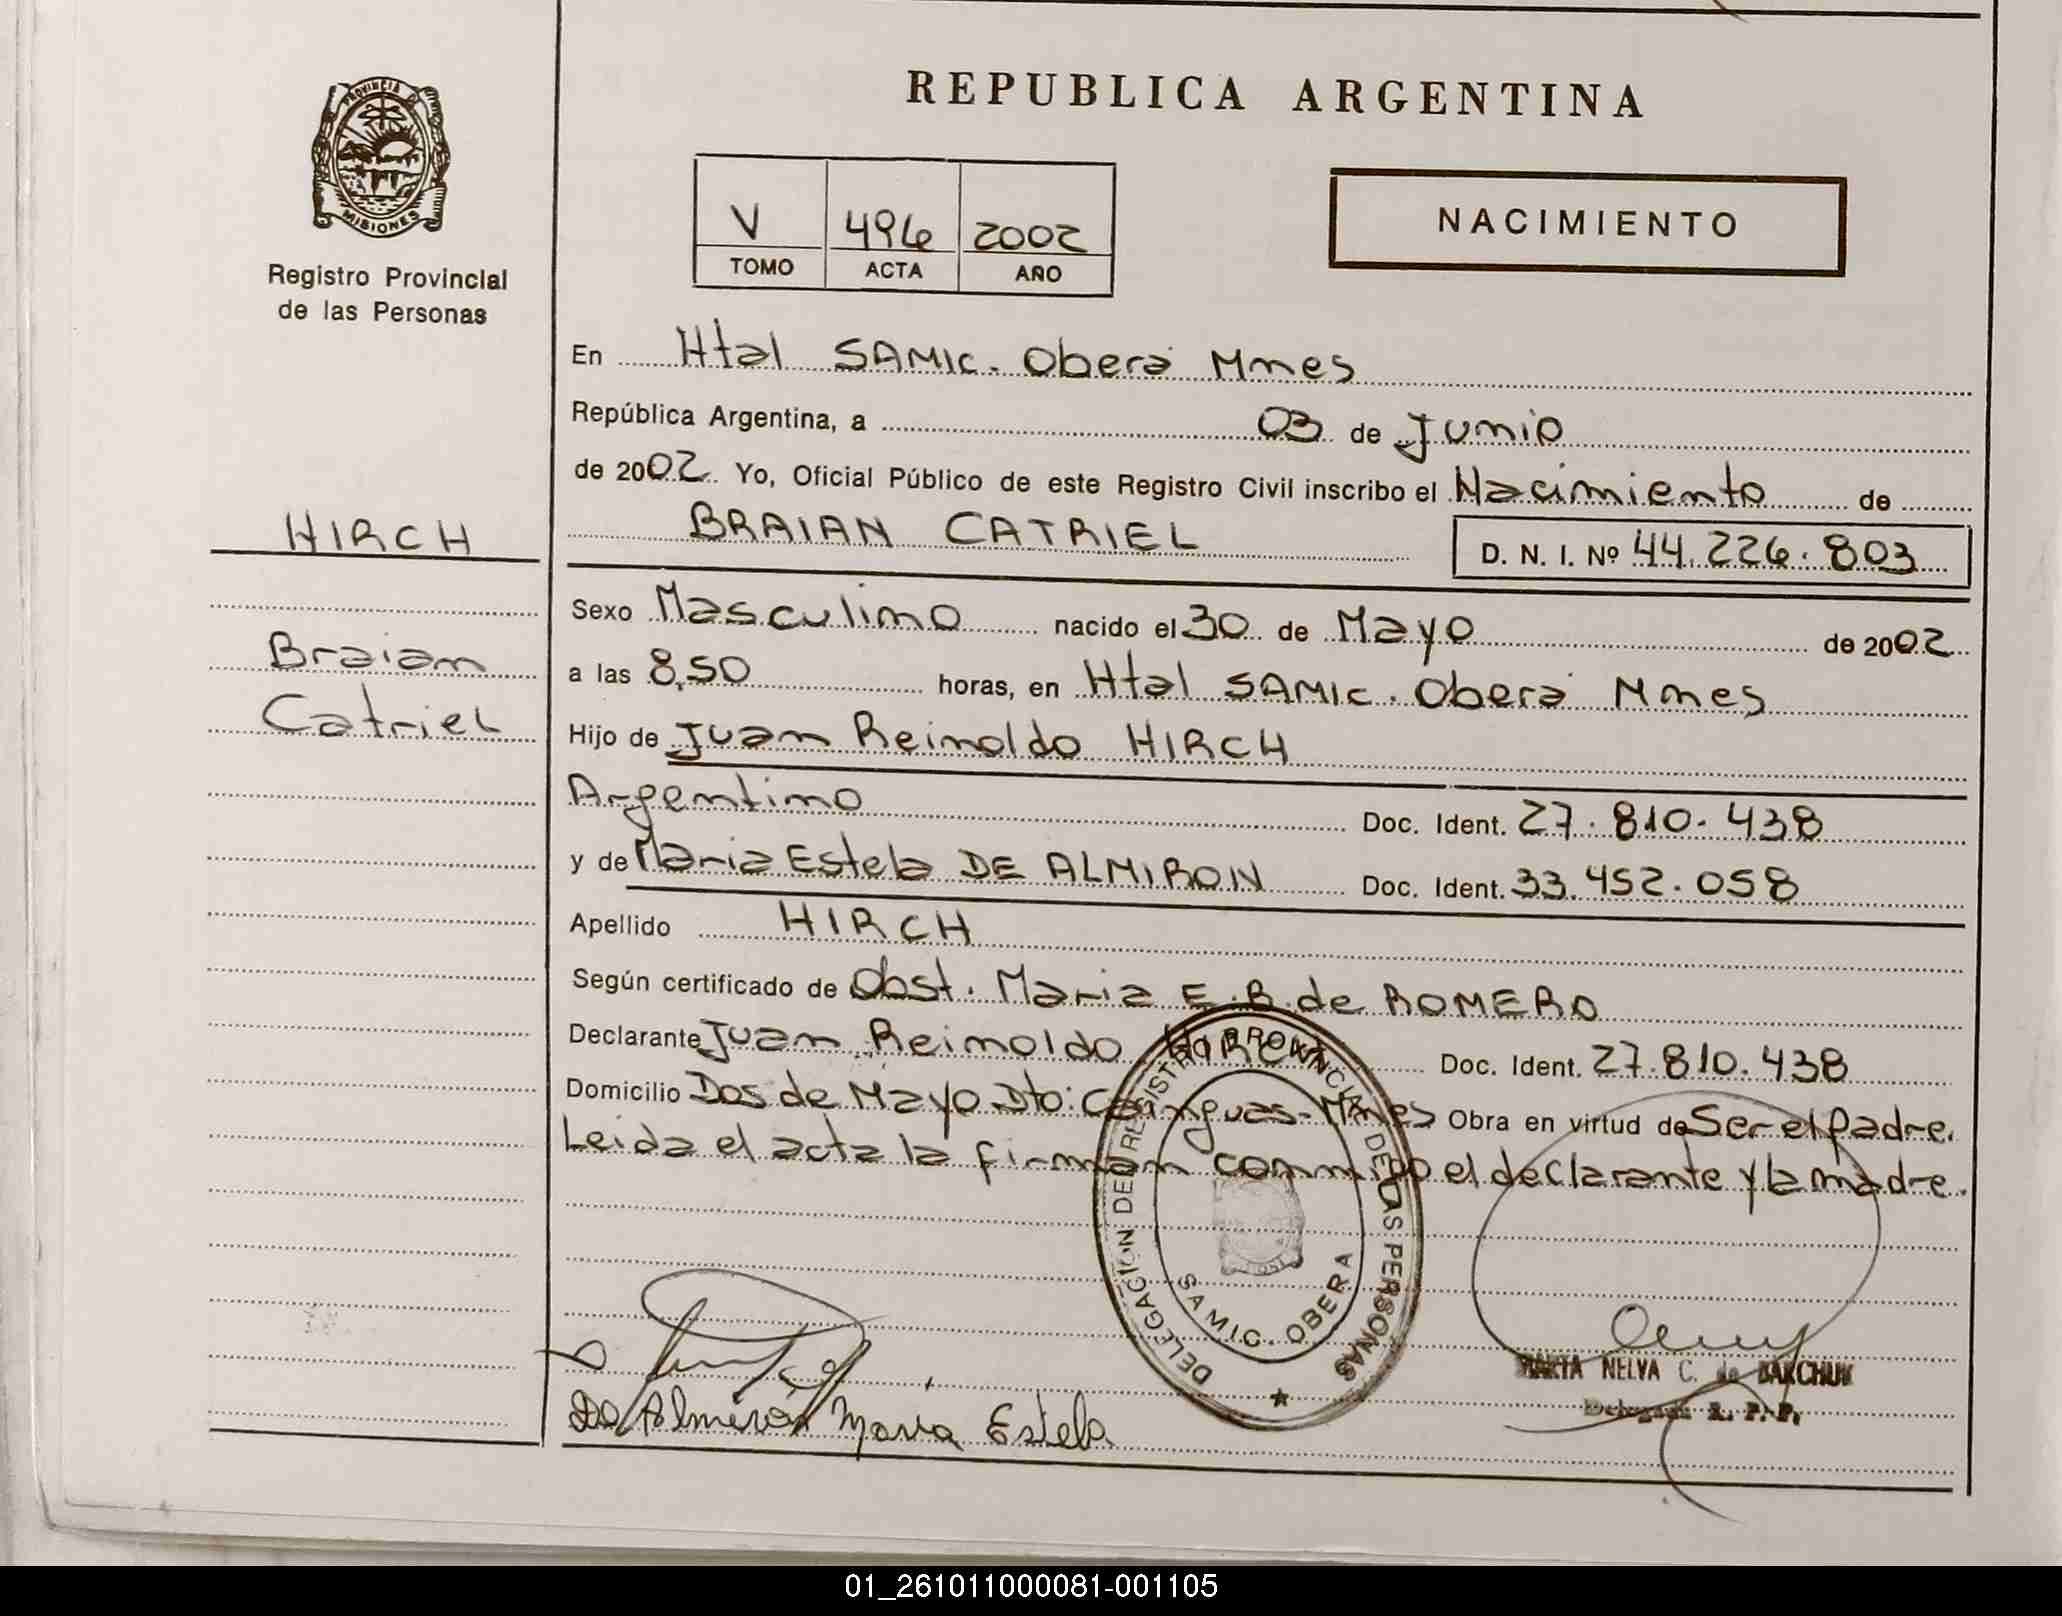 REPUBLICA ARGENTINA
PROVINCIA DE
MISIONES
Registro Provincial
de las Personas
V 496 2002
TOMO ACTA AÑO
NACIMIENTO
En Htal SAMIC. Oberá Mnes
República Argentina, a 03 de Junio
de 2002 Yo, Oficial Público de este Registro Civil inscribo el Nacimiento de
HIRCH
BRAIAN CATRIEL D. N. I. Nº 44.226.803
Sexo Masculino nacido el 30 de Mayo de 2002
Braian
a las 8,50 horas, en Htal SAMIC. Oberá Mnes
Catriel
Hijo de Juan Reinoldo HIRCH
Argentino Doc. Ident. 27.810.438
y de Maria Estela DE ALMIRON Doc. Ident. 33.452.058
Apellido HIRCH
Según certificado de Obst. Maria E.B. de ROMERO
Declarante Juan Reinoldo HIRCH Doc. Ident. 27.810.438
Domicilio Dos de Mayo Dto: Cainguas-Mnes Obra en virtud de Ser el padre.
Leida el acta la firman conmigo el declarante y la madre.
DELEGACION DEL REGISTRO PROVINCIAL DE LAS PERSONAS
SAMIC. OBERA
MARTA NELVA C. de BAKCHUK
Delegada R. P. P.
De Almirón Maria Estela
01_261011000081-001105